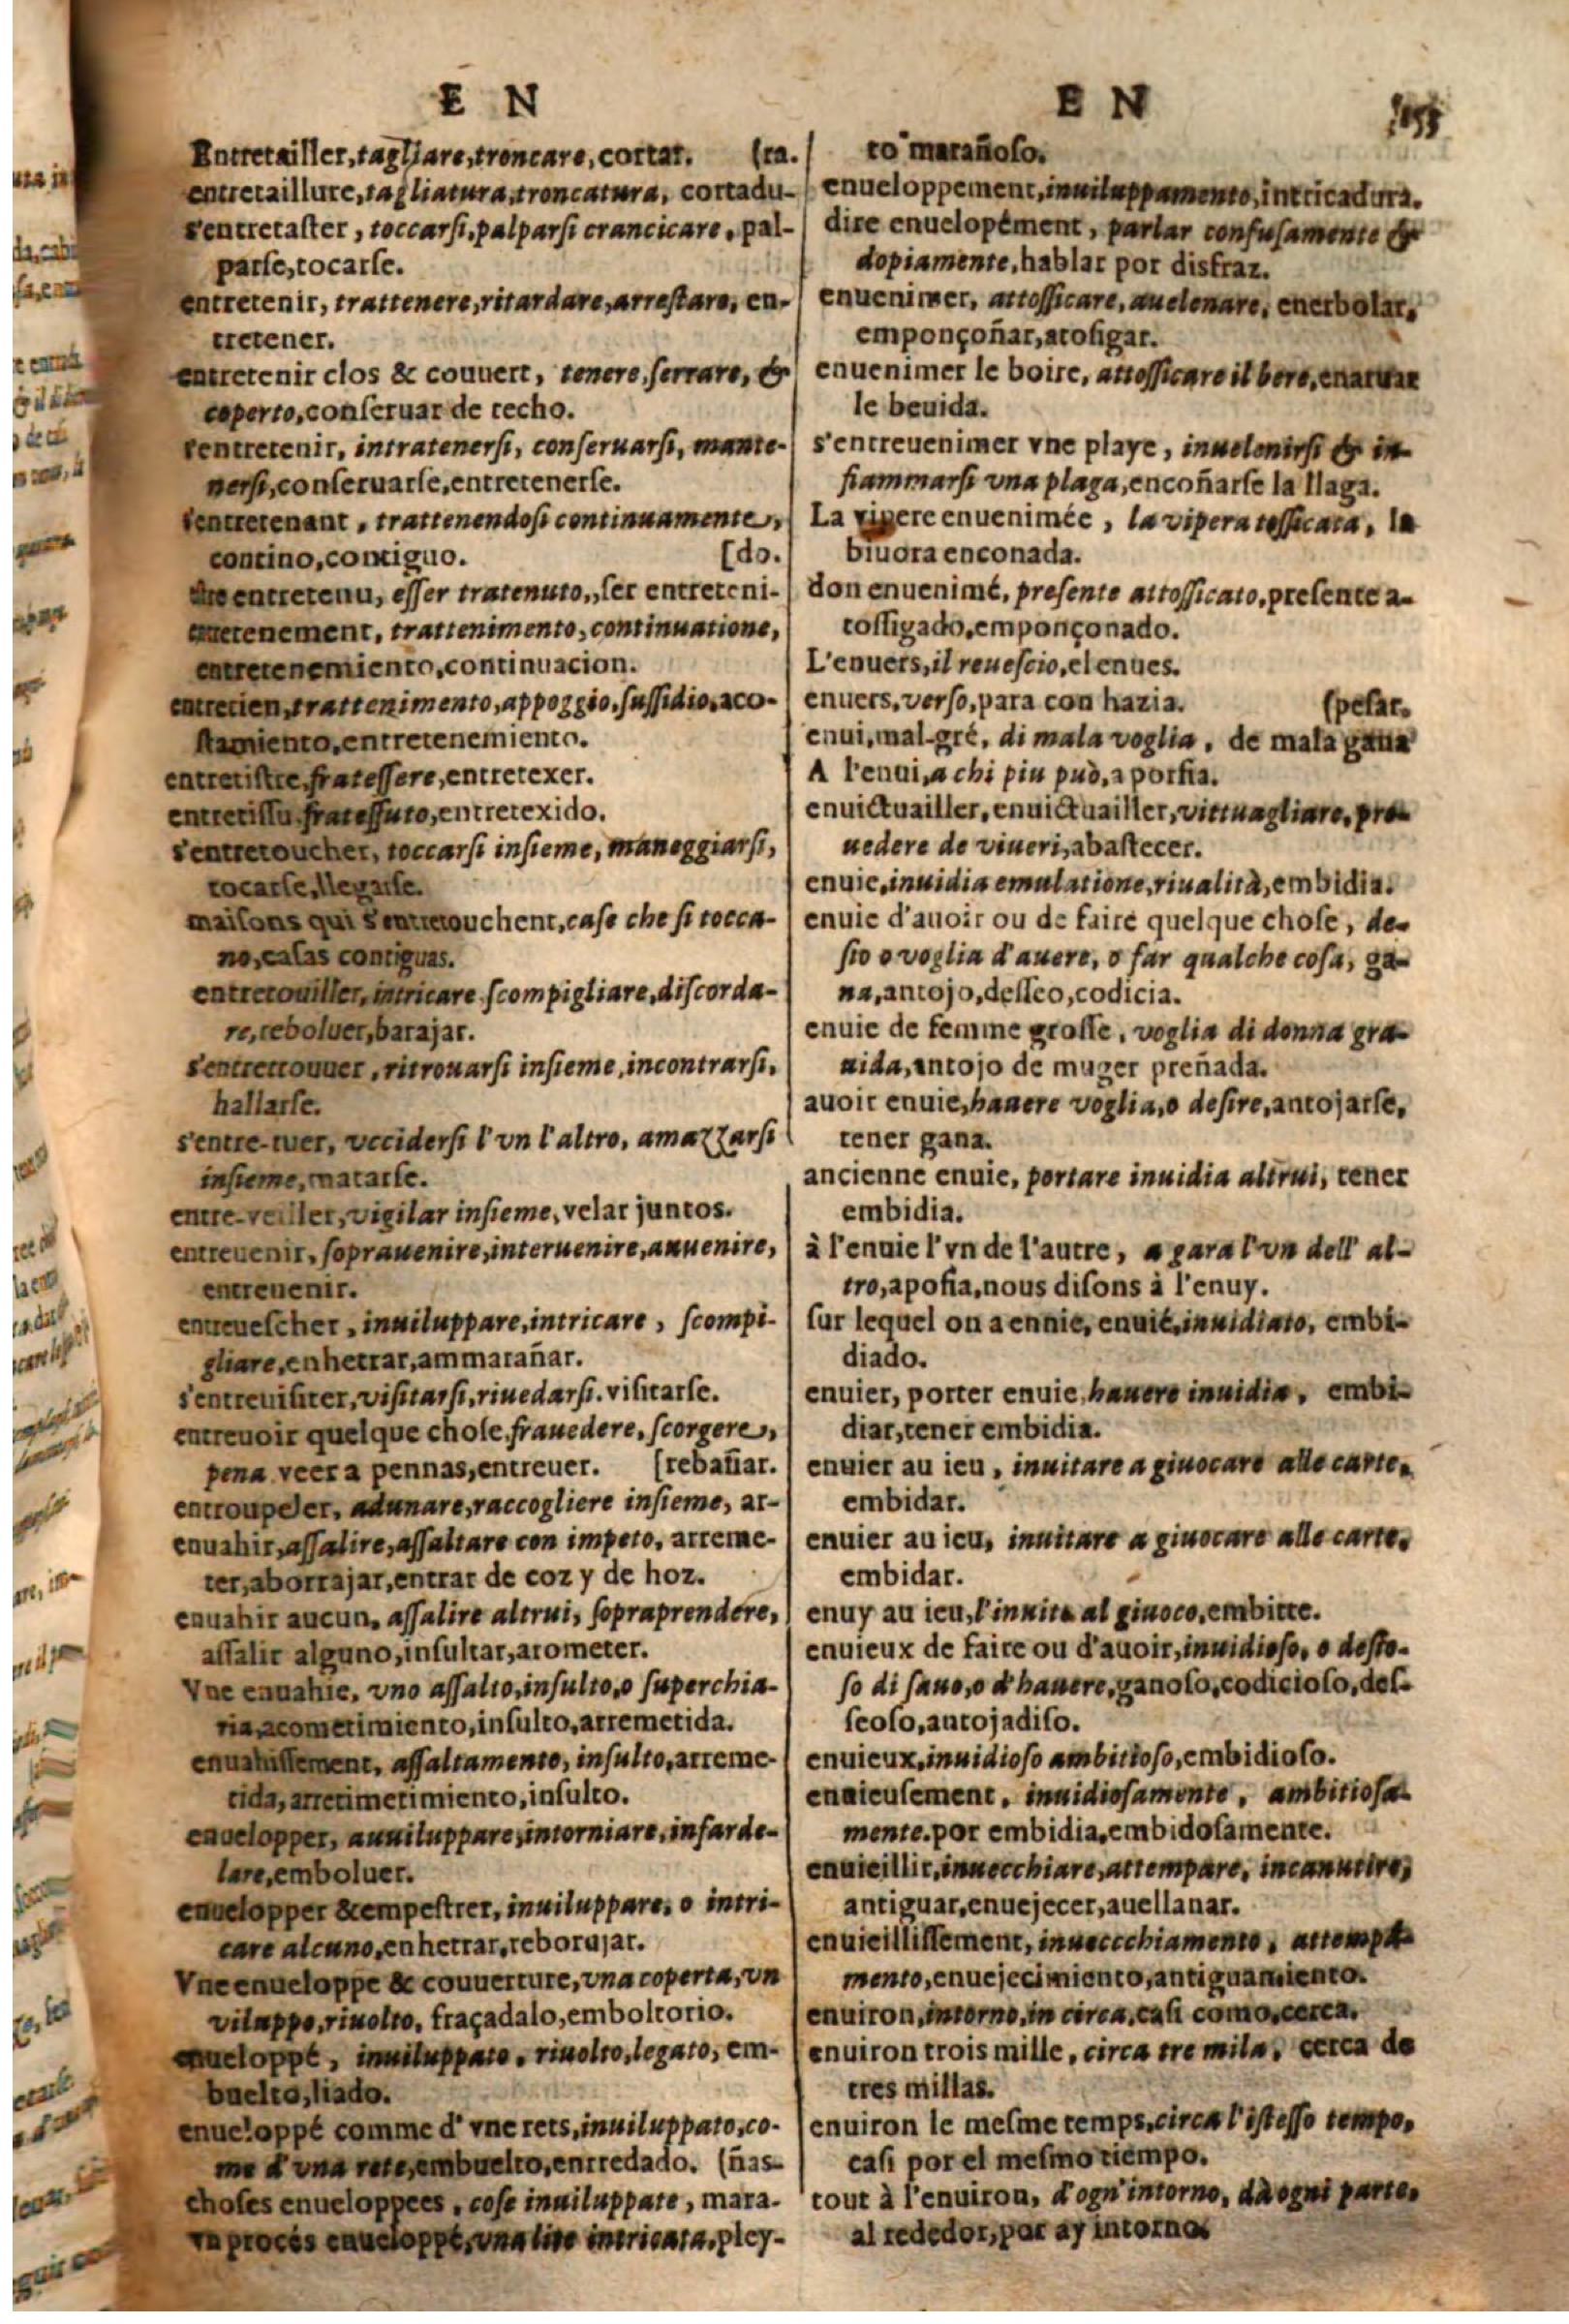 E N
Entretailler, tagliare, troncare, cortar. (ra.
entretaillure, tagliatura, troncatura, cortadu-
s'entretaſter, toccarſi, palparſi crancicare, pal-
parſe, tocarſe.
entretenir, trattenere, ritardare, arreſtare, en-
tretener.
entretenir clos & couuert, tenere, ſerrare, &
coperto, conſeruar de techo.
s'entretenir, intratenerſi, conſeruarſi, mante-
nerſi, conſeruarſe, entretenerſe.
s'entretenant, trattenendoſi continuamente,
contino, contiguo. [do.
entretenu, eſſer tratenuto,, ſer entreteni-
entretenement, trattenimento, continuatione,
entretenemiento, continuacion.
entretien, trattenimento, appoggio, ſuſſidio, aco-
ſtamiento, entretenemiento.
entretiſtre, frateſſere, entretexer.
entretiſſu, frateſſuto, entretexido.
s'entretoucher, toccarſi inſieme, maneggiarſi,
tocarſe, llegarſe.
maiſons qui s'entretouchent, caſe che ſi tocca-
no, caſas contiguas.
entretouiller, intricare ſcompigliare, diſcorda-
re, reboluer, barajar.
s'entretrouuer, ritrouarſi inſieme, incontrarſi,
hallarſe.
s'entre-tuer, vcciderſi l'vn l'altro, amazzarſi
inſieme, matarſe.
entre-veiller, vigilar inſieme, velar juntos.
entreuenir, ſoprauenire, interuenire, auuenire,
entreuenir.
entreueſcher, inuiluppare, intricare, ſcompi-
gliare, enhetrar, ammarañar.
s'entreuiſiter, viſitarſi, riuedarſi. viſitarſe.
entreuoir quelque choſe, frauedere, ſcorgere,
pena veer a pennas, entreuer. [rebañar.
entroupeler, adunare, raccogliere inſieme, ar-
enuahir, aſſalire, aſſaltare con impeto, arreme-
ter, aborrajar, entrar de coz y de hoz.
enuahir aucun, aſſalire altrui, ſopraprendere,
aſſalir alguno, inſultar, arometer.
Vne enuahie, vno aſſalto, inſulto, o ſuperchia-
ria, acometimiento, inſulto, arremetida.
enuahiſſement, aſſaltamento, inſulto, arreme-
tida, arretimetimiento, inſulto.
enuelopper, auuiluppare, intorniare, infarde-
lare, emboluer.
enuelopper & empeſtrer, inuiluppare, o intri-
care alcuno, enhetrar, reborujar.
Vne enueloppe & couuerture, vna coperta, vn
viluppo, riuolto, fraçadalo, emboltorio.
enueloppé, inuiluppato, riuolto, legato, em-
buelto, liado.
enueloppé comme d'vne rets, inuiluppato, co-
me d'vna rete, embuelto, enrredado. (ñas-
choſes enueloppees, coſe inuiluppate, mara-
vn procés enueloppé, vna lite intricata, pley-
E N
to marañoſo.
enueloppement, inuiluppamento, intricadura.
dire enuelopément, parlar confuſamente &
dopiamente, hablar por disfraz.
enuenimer, attoſſicare, auelenare, enerbolar,
emponçoñar, atoſigar.
enuenimer le boire, attoſſicare il bere,
le beuida.
s'entreuenimer vne playe, inuelenirſi & in-
fiammarſi vna plaga, encoñarſe la llaga.
La vipere enuenimée, la vipera toſſicata, la
biuora enconada.
don enuenimé, preſente attoſſicato, preſente a-
toſſigado, emponçonado.
L'enuers, il reueſcio, el enues.
enuers, verſo, para con hazia. (peſar.
enui, mal-gré, di mala voglia, de mala gana
A l'enui, a chi piu può, a porfia.
enuictuailler, enuictuailler, vittuagliare, pro-
uedere de viueri, abaſtecer.
enuie, inuidia emulatione, riualità, embidia.
enuie d'auoir ou de faire quelque choſe, de-
ſio o voglia d'auere, o far qualche coſa, ga-
na, antojo, deſſeo, codicia.
enuie de femme groſſe, voglia di donna gra-
uida, antojo de muger preñada.
auoir enuie, hauere voglia, o deſire, antojarſe,
tener gana.
ancienne enuie, portare inuidia altrui, tener
embidia.
à l'enuie l'vn de l'autre, a gara l'vn dell' al-
tro, apofia, nous diſons à l'enuy.
ſur lequel on a ennie, enuié, inuidiato, embi-
diado.
enuier, porter enuie, hauere inuidia, embi-
diar, tener embidia.
enuier au ieu, inuitare a giuocare alle carte,
embidar.
enuier au ieu, inuitare a giuocare alle carte,
embidar.
enuy au ieu, l'inuito al giuoco, embitte.
enuieux de faire ou d'auoir, inuidioſo, o deſio-
ſo di ſauo, o d'hauere, ganoſo, codicioſo, deſ-
ſeoſo, autojadiſo.
enuieux, inuidioſo ambitioſo, embidioſo.
enuieuſement, inuidioſamente, ambitioſa-
mente. por embidia, embidoſamente.
enuieillir, inuecchiare, attempare, incanutire,
antiguar, enuejecer, auellanar.
enuieilliſſement, inueccchiamento, attempa-
mento, enuejecimiento, antiguamiento.
enuiron, intorno, in circa, caſi como, cerca.
enuiron trois mille, circa tre mila, cerca de
tres millas.
enuiron le meſme temps, circa l'iſteſſo tempo,
caſi por el meſmo tiempo.
tout à l'enuiron, d'ogn'intorno, dà ogni parte,
al rededor, por ay intorno.